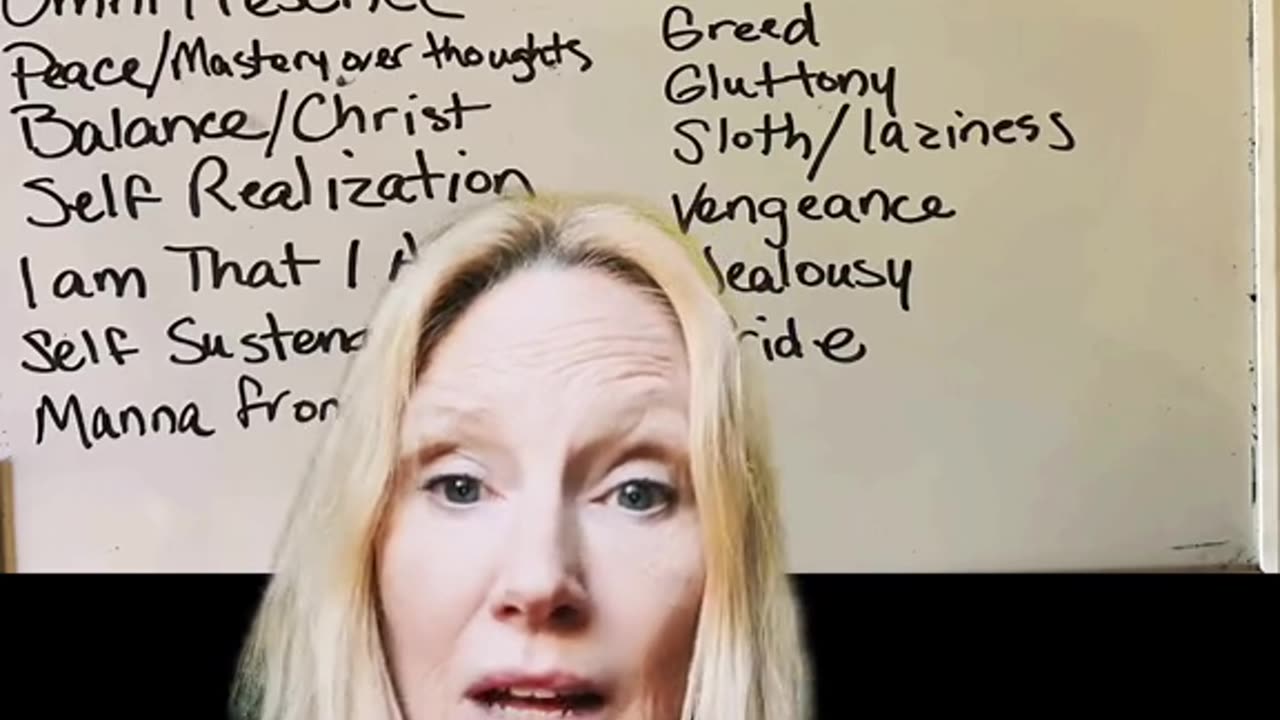 Peace/Mastery over thoughts
Balance/Christ
Self Realization
I am That I
Self
Manna
Greed
Gluttony
Sloth/laziness
Vengeance